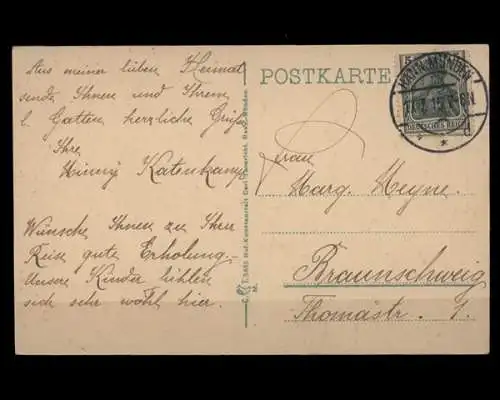 Aus meiner lieben Heimat
sende Ihnen und Ihrem
l. Gatten herzliche Grüße
Ihre
Katenkamp
Wünsche Ihnen zu Ihrer
Reise gute Erholung.
Unsere Kinder fühlen
sich sehr wohl hier.
POSTKARTE
DEUTSCHES REICH
Frau
Marg. Heyne.
Braunschweig
Thomästr. 1.